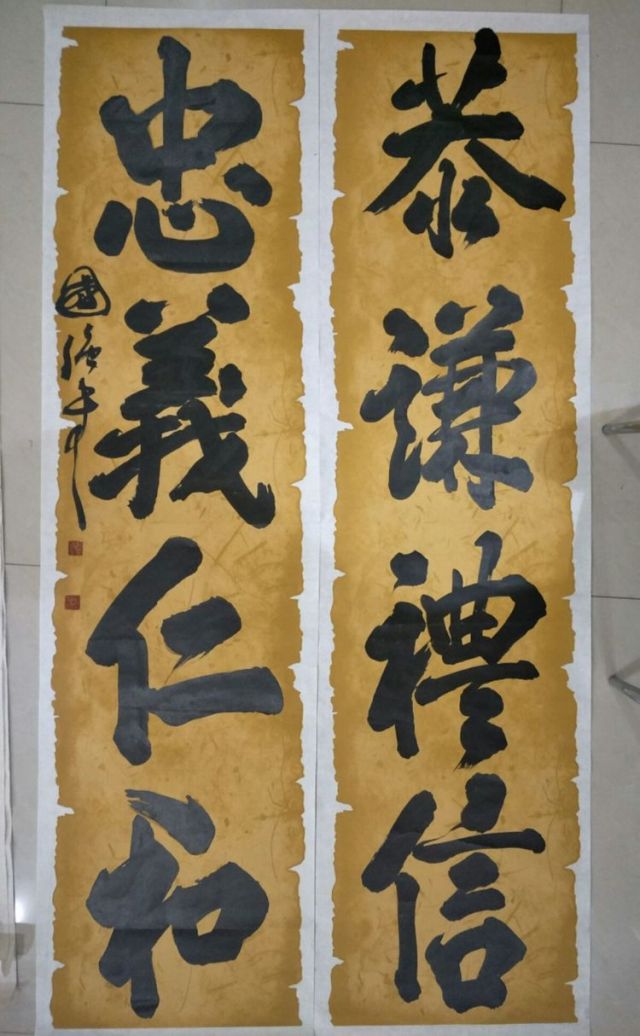 恭謙禮信
忠義仁和
國強书